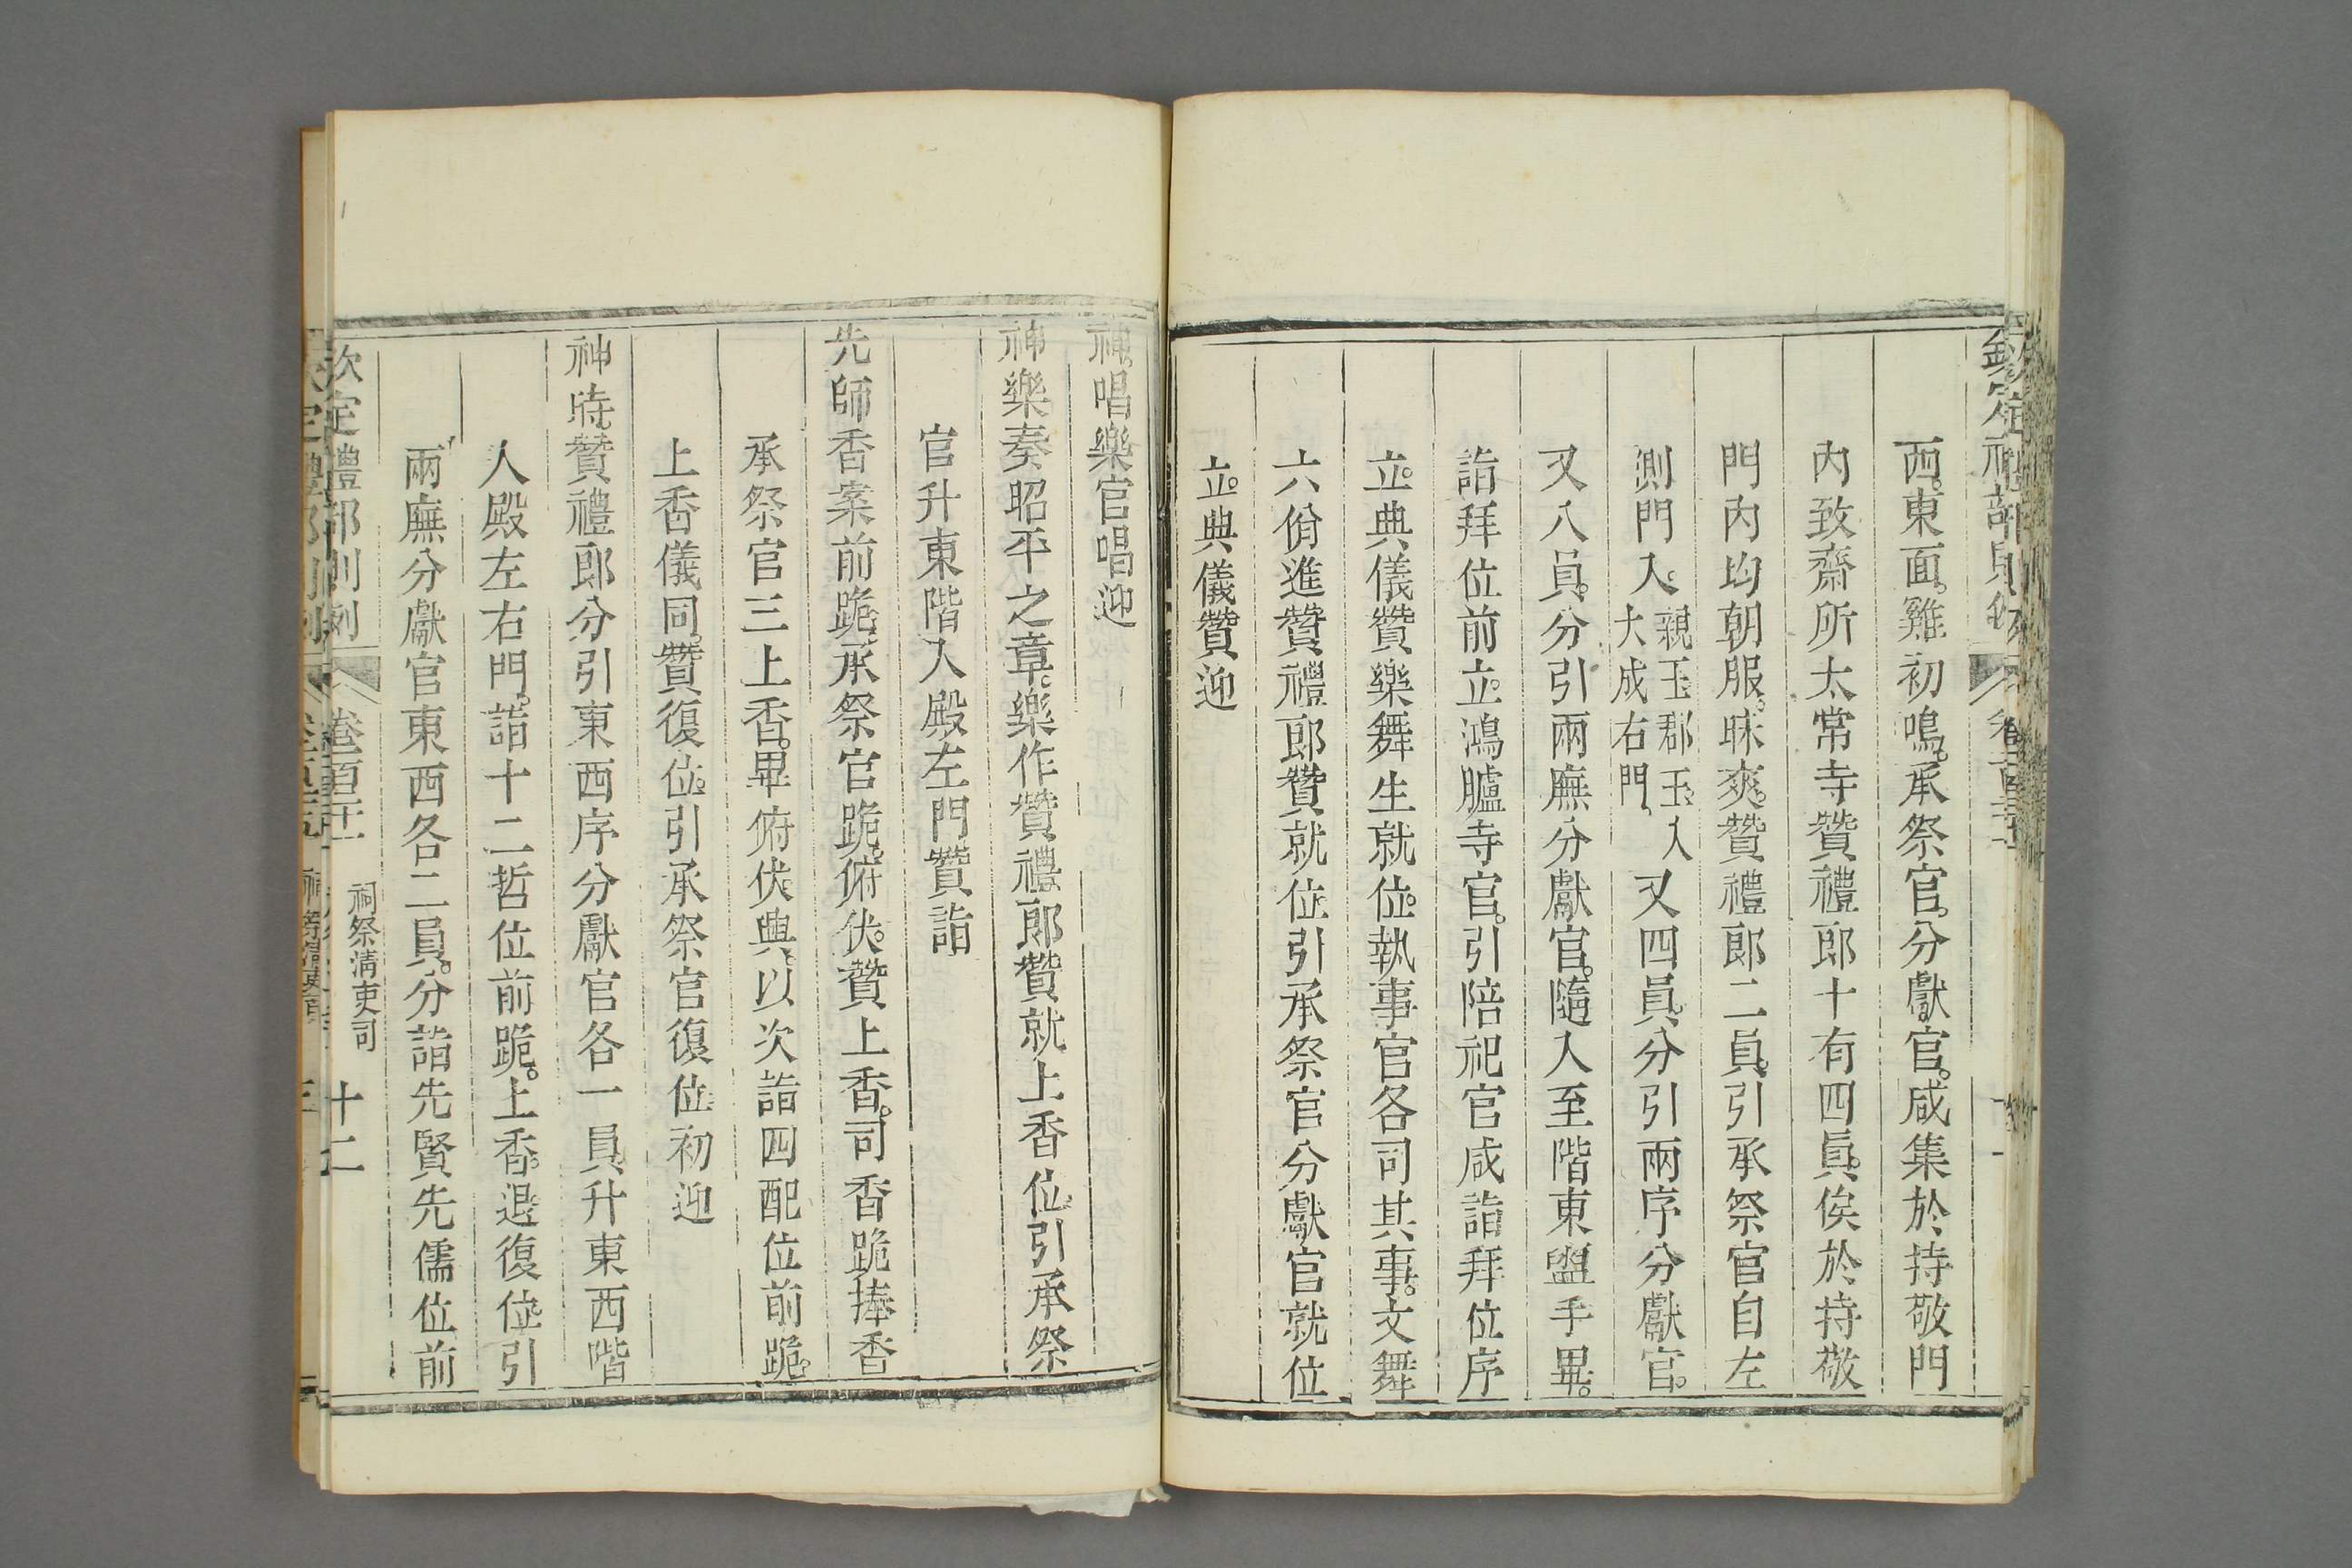 西。東面。雞初鳴。承祭官。分獻官。咸集於持敬門
內致齋所太常寺贊禮郎十有四員。俟於持敬
門內均朝服。昧爽。贊禮郎二員。引承祭官自左
側門入。親王郡王。入大成右門、又四員。分引兩序分獻官。
又八員。分引兩廡分獻官。隨入至階東盥手畢。
詣拜位前立。鴻臚寺官。引陪祀官咸詣拜位序
立。典儀贊樂舞生就位。執事官各司其事。文舞
六佾進贊禮郎贊就位引承祭官分獻官就位
立。典儀贊迎
神。唱樂官唱迎
神樂奏昭平之章。樂作贊禮郎贊就上香位。引承祭
官升東階入殿左門贊詣
先師香案前跪。承祭官跪。俯伏。贊上香。司香跪捧香
承祭官三上香。畢俯伏。興。以次詣四配位前跪。
上香儀同。贊復位。引承祭官復位初迎
神時。贊禮郎分引東西序分獻官各一員升東西階
入殿左右門。詣十二哲位前跪。上香。退復位。引
兩廡分獻官東西各二員。分詣先賢先儒位前
欽定禮部則例
祠祭清吏司
十二